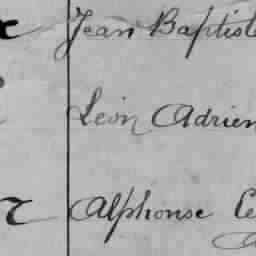 Jean Baptiste
Léon Adrien
Alphonse